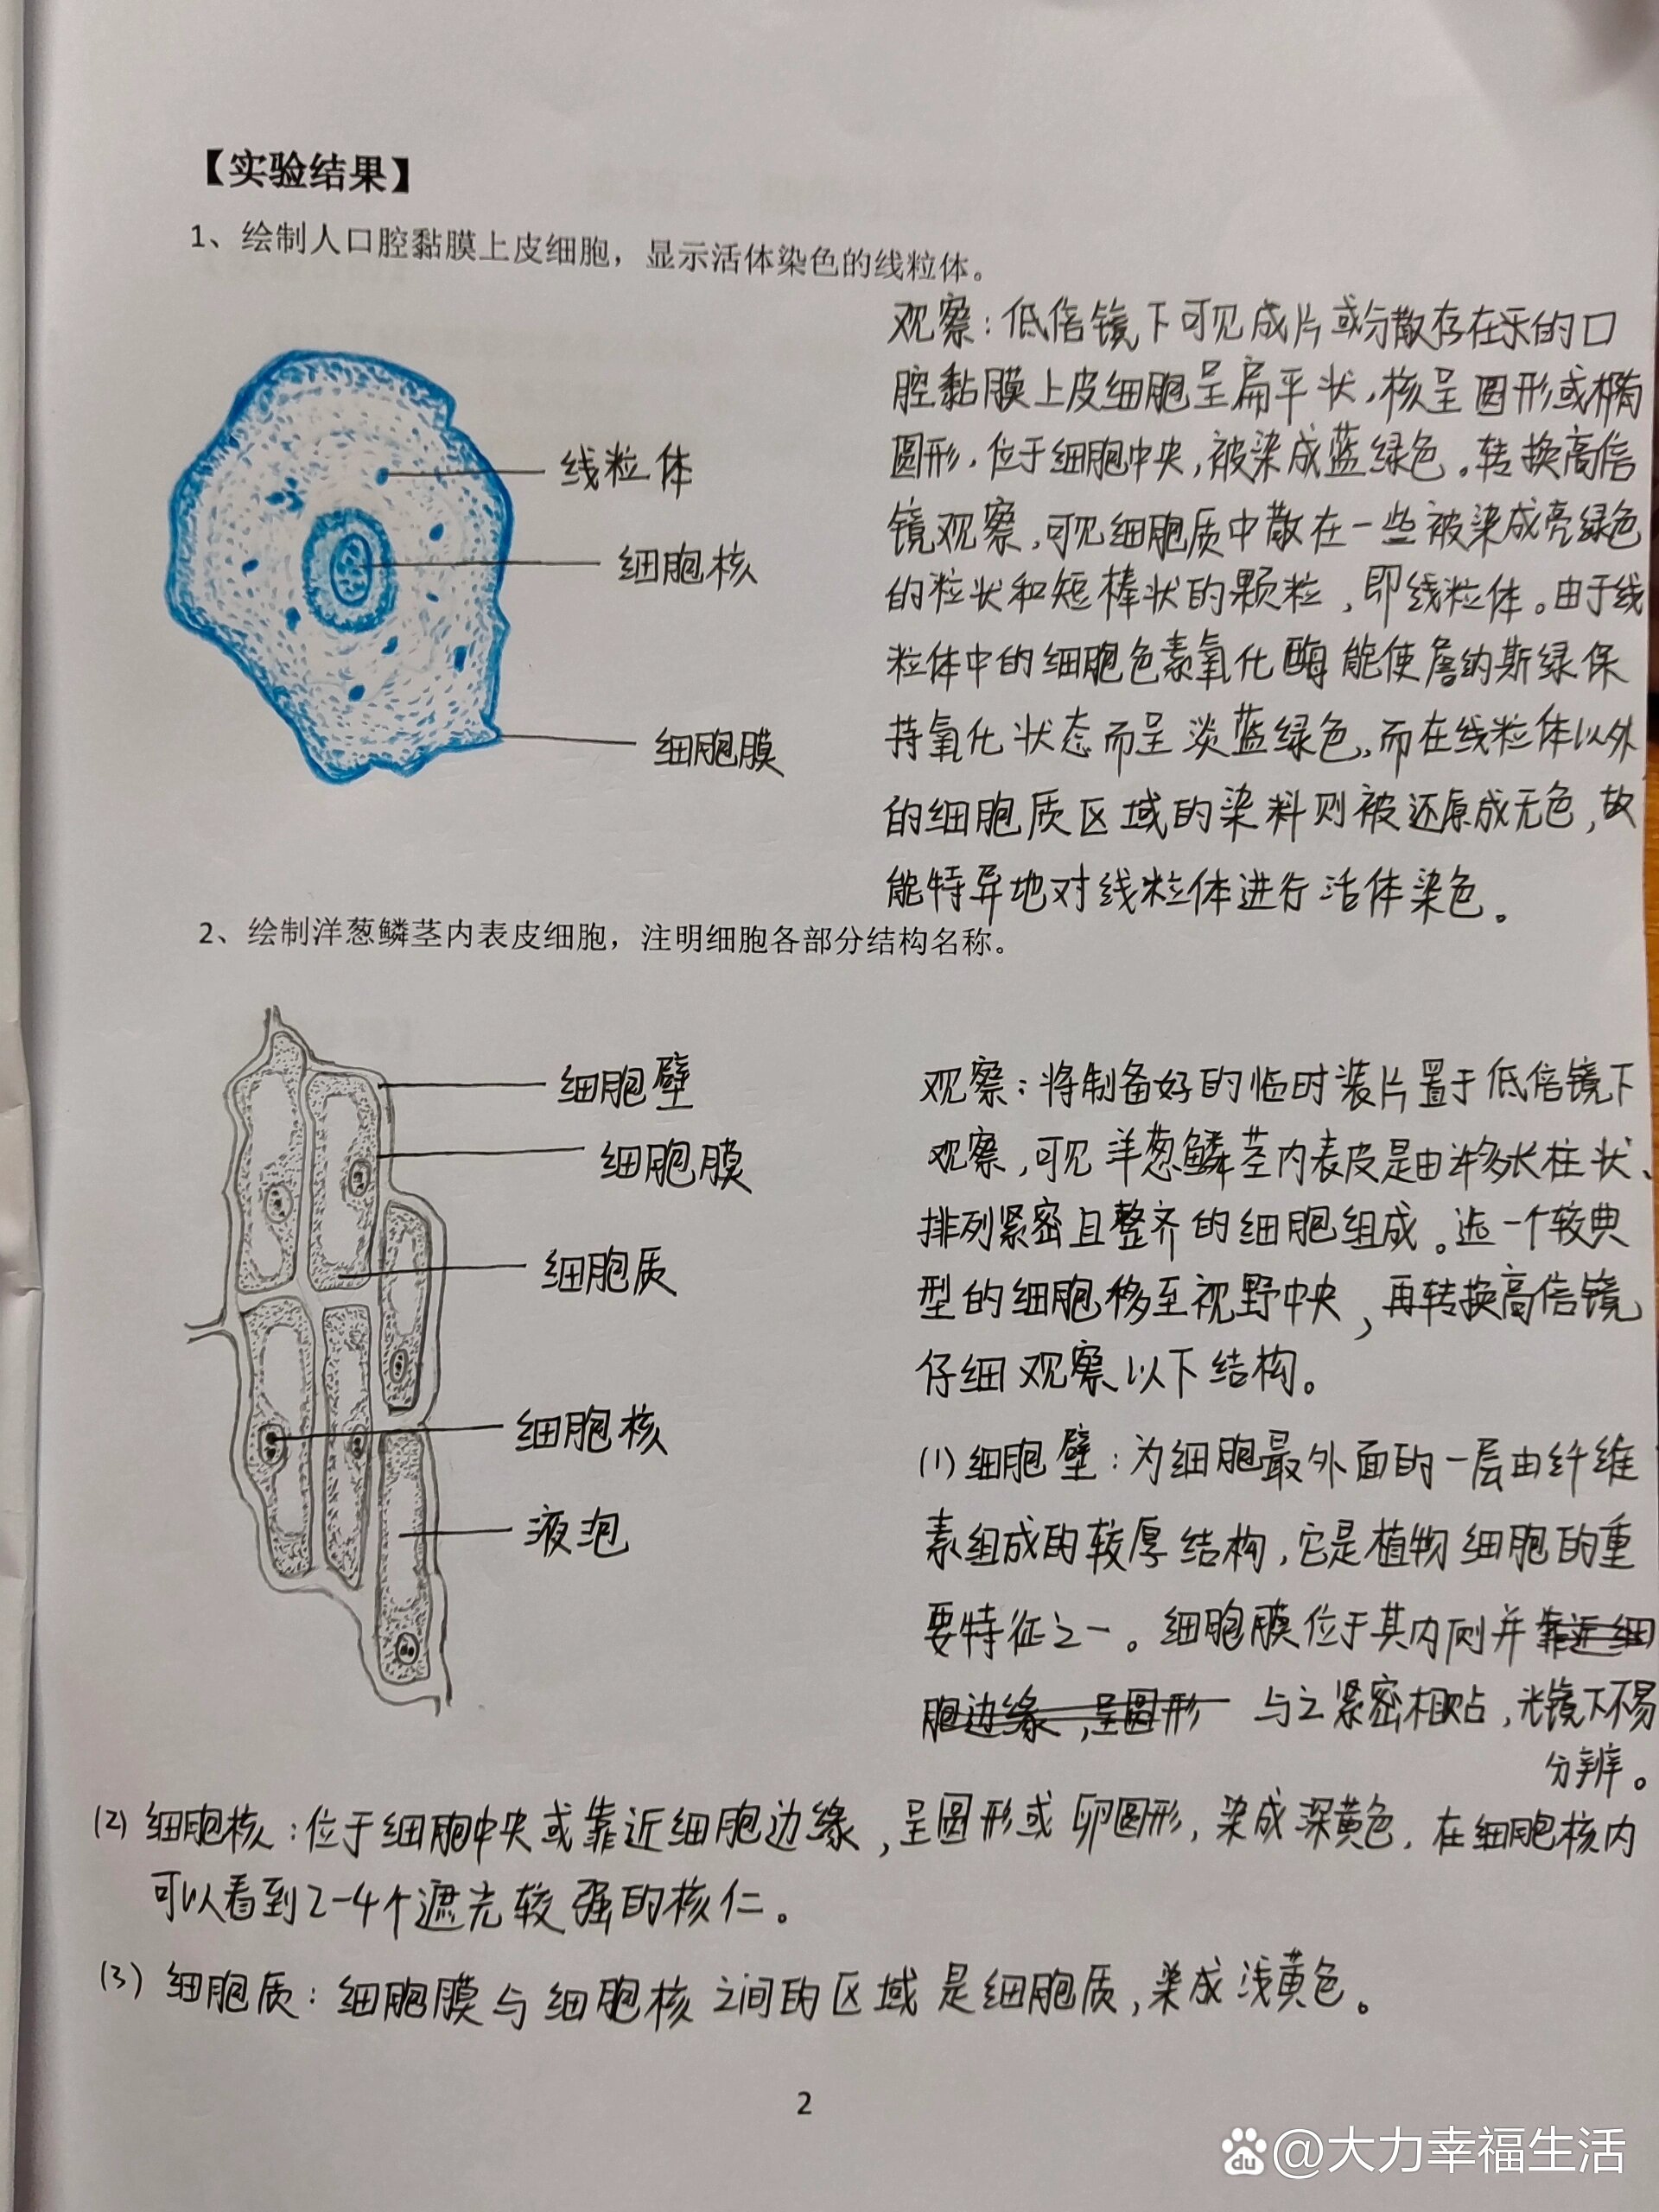 【实验结果】
1、绘制人口腔黏膜上皮细胞，显示活体染色的线粒体。
观察：低倍镜下可见成片或分散存在的口
腔黏膜上皮细胞呈扁平状，核呈圆形或椭
圆形，位于细胞中央，被染成蓝绿色。转换高倍
镜观察，可见细胞质中散在一些被染成亮绿色
的粒状和短棒状的颗粒，即线粒体。由于线
粒体中的细胞色素氧化酶能使詹纳斯绿保
持氧化状态而呈淡蓝绿色，而在线粒体以外
的细胞质区域的染料则被还原成无色，故
能特异地对线粒体进行活体染色。
线粒体
细胞核
细胞膜
2、绘制洋葱鳞茎内表皮细胞，注明细胞各部分结构名称。
细胞壁
细胞膜
细胞质
细胞核
液泡
观察：将制备好的临时装片置于低倍镜下
观察，可见洋葱鳞茎内表皮是由许多长柱状、
排列紧密且整齐的细胞组成。选一个较典
型的细胞移至视野中央，再转换高倍镜
仔细观察以下结构。
(1)细胞壁：为细胞最外面的一层由纤维
素组成的较厚结构，它是植物细胞的重
要特征之一。细胞膜位于其内侧并靠近细
胞边缘，呈圆形 与之紧密相贴，光镜下不易
分辨。
(2)细胞核：位于细胞中央或靠近细胞边缘，呈圆形或卵圆形，染成深黄色，在细胞核内
可以看到2-4个遮光较强的核仁。
(3)细胞质：细胞膜与细胞核之间的区域是细胞质，染成浅黄色。
2
du @大力幸福生活